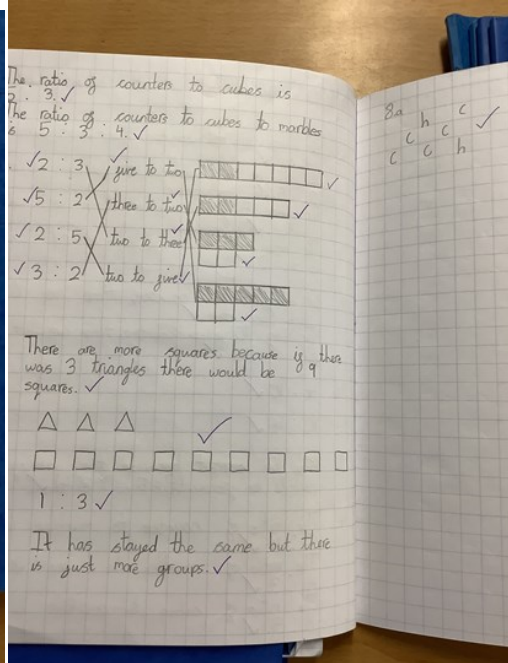 The ratio of counters to cubes is
2 : 3.
The ratio of counters to cubes to marbles
is 5 : 3 : 4.
2 : 3 five to two
5 : 2 three to two
2 : 5 two to three
3 : 2 two to five
There are more squares because if there
was 3 triangles there would be 9
squares.
1 : 3
It has stayed the same but there
is just more groups.
8a
h c
c c
c c h